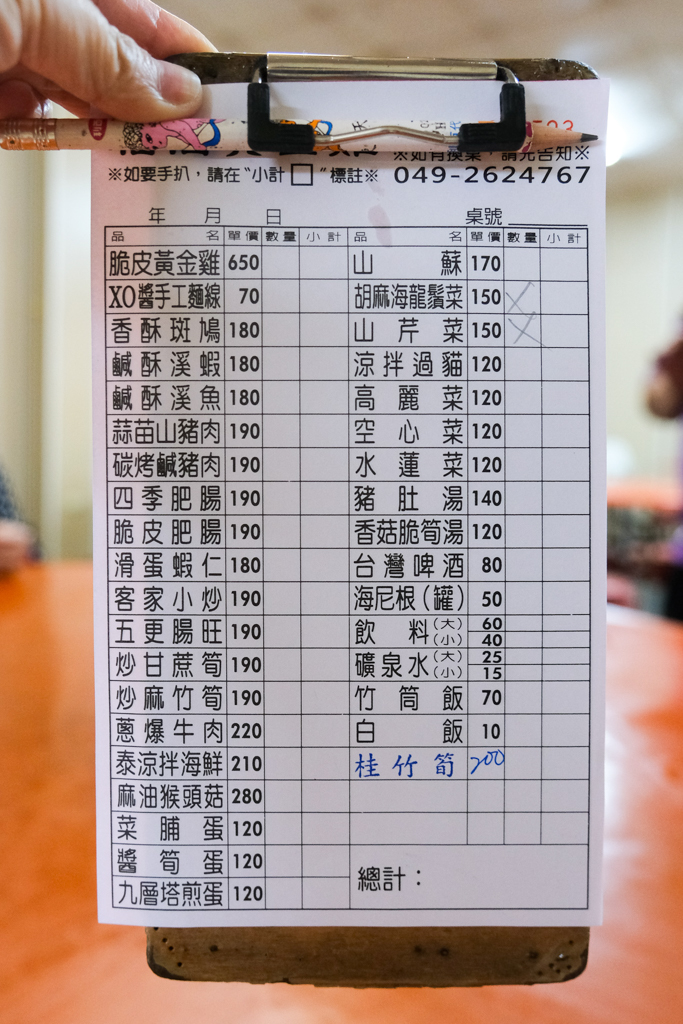 ※如有換桌，請先告知※
※如要手扒，請在“小計□”標註※ 049-2624767
年 月 日 桌號
品名 單價 數量 小計 品名 單價 數量 小計
脆皮黃金雞 650 山蘇 170
XO醬手工麵線 70 胡麻海龍鬚菜 150
香酥斑鳩 180 山芹菜 150
鹹酥溪蝦 180 涼拌過貓 120
鹹酥溪魚 180 高麗菜 120
蒜苗山豬肉 190 空心菜 120
碳烤鹹豬肉 190 水蓮菜 120
四季肥腸 190 豬肚湯 140
脆皮肥腸 190 香菇脆筍湯 120
滑蛋蝦仁 180 台灣啤酒 80
客家小炒 190 海尼根（罐） 50
五更腸旺 190 飲料（大） 60 （小） 40
炒甘蔗筍 190 礦泉水（大） 25 （小） 15
炒麻竹筍 190 竹筒飯 70
蔥爆牛肉 220 白飯 10
泰涼拌海鮮 210 桂竹筍 200
麻油猴頭菇 280
菜脯蛋 120
醬筍蛋 120
九層塔煎蛋 120
總計：